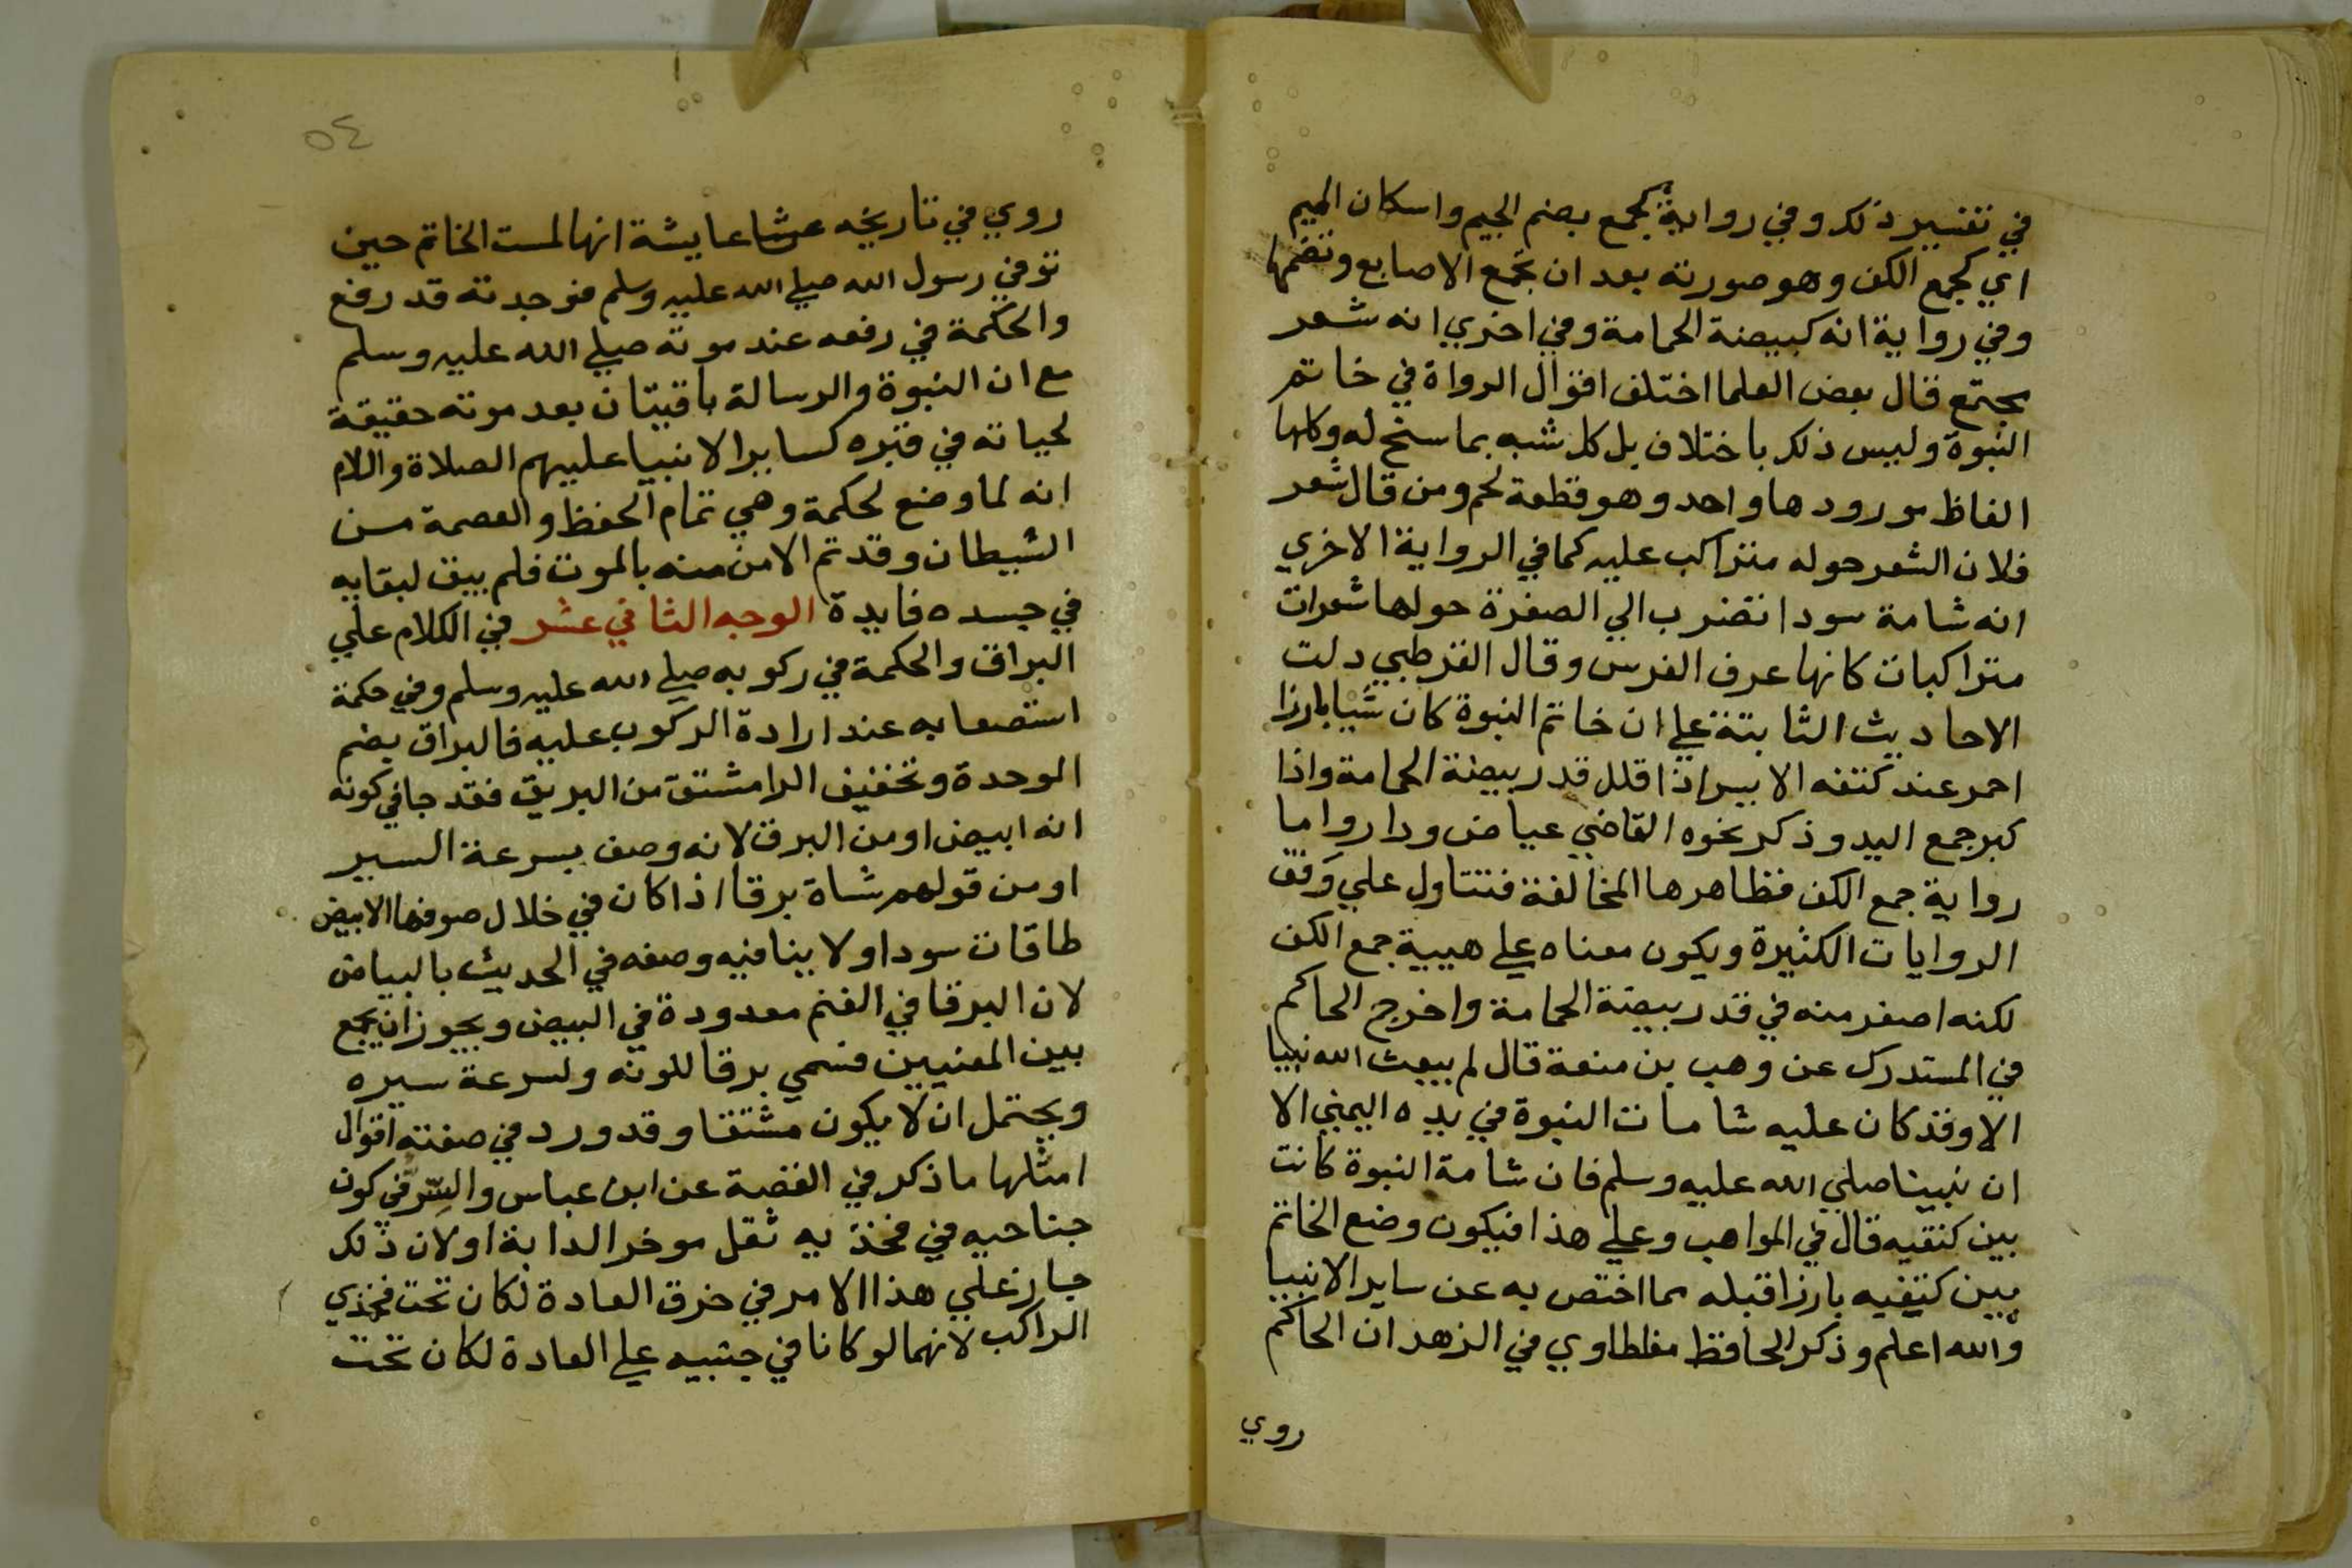 في تفسير ذلك وفي رواية كجمع بضم الجيم واسكان الميم
اي كجمع الكف وهو صورته بعد ان تجمع الاصابع وتضمها
وفي رواية انه كبيضة الحمامة وفي اخري انه شعر
مجتمع قال بعض العلما اختلف اقوال الرواة في خاتم
النبوة وليس ذلك باختلاف بل كل شبه بما سنح له وكلها
الفاظ مورودها واحد وهو قطعة لحم ومن قال شعر
فلان الشعر حوله متراكب عليه كما في الرواية الاخري
انه شامة سودا تضرب الي الصفرة حولها شعرات
متراكبات كانها عرف الفرس وقال القرطبي دلت
الاحاديث الثابتة علي ان خاتم النبوة كان شيا بارزا
احمر عند كتفه الايسر اذا قلل قدر بيضة الحمامة واذا
كبر جمع اليد وذكر نحوه القاضي عياض وزاد واما
رواية جمع الكف فظاهرها المخالفة فتتاول علي وفق
الروايات الكثيرة ويكون معناه علي هيية جمع الكف
لكنه اصغر منه في قدر بيضة الحمامة واخرج الحاكم
في المستدرك عن وهب بن منعة قال لم يبعث الله نبيا
الا وقد كان عليه شامات النبوة في يده اليمني الا
ان نبينا صلي الله عليه وسلم فان شامة النبوة كانت
بين كتفيه قال في المواهب وعلي هذا فيكون وضع الخاتم
بين كتفيه بارزا قبله مما اختص به عن ساير الانبيا
والله اعلم وذكر الحافظ مغلطاوي في الزهد ان الحاكم
روي
٥٤
روي في تاريخه عن عايشة انها لمست الخاتم حين
توفي رسول الله صلي الله عليه وسلم فوجدته قد رفع
والحكمة في رفعه عند موته صلي الله عليه وسلم
مع ان النبوة والرسالة باقيتان بعد موته حقيقة
لحياته في قبره كساير الانبيا عليهم الصلاة والسلام
انه لما وضع لحكمة وهي تمام الحفظ والعصمة من
الشيطان وقد تم الامن منه بالموت فلم يبق لبقايه
في جسده فايدة الوجه الثاني عشر في الكلام علي
البراق والحكمة في ركوبه صلي الله عليه وسلم وفي حكمة
استصعابه عند ارادة الركوب عليه فالبراق بضم
الموحدة وتخفيف الرا مشتق من البريق فقد جا في كونه
انه ابيض او من البرق لانه وصف بسرعة السير
او من قولهم شاة برقا اذا كان في خلال صوفها الابيض
طاقات سودا ولا ينافيه وصفه في الحديث بالبياض
لان البرقا في الغنم معدودة في البيض ويجوز ان يجمع
بين المعنيين فسمي برقا للونه ولسرعة سيره
ويحتمل ان لا يكون مشتقا وقد ورد في صفته اقوال
امثلها ما ذكر في القصة عن ابن عباس والسر في كون
جناحيه في فخذيه ثقل موخر الدابة او لان ذلك
جار علي هذا الامر في خرق العادة لكان تحت فخذي
الراكب لانهما لو كانا في جنبيه علي العادة لكان تحت